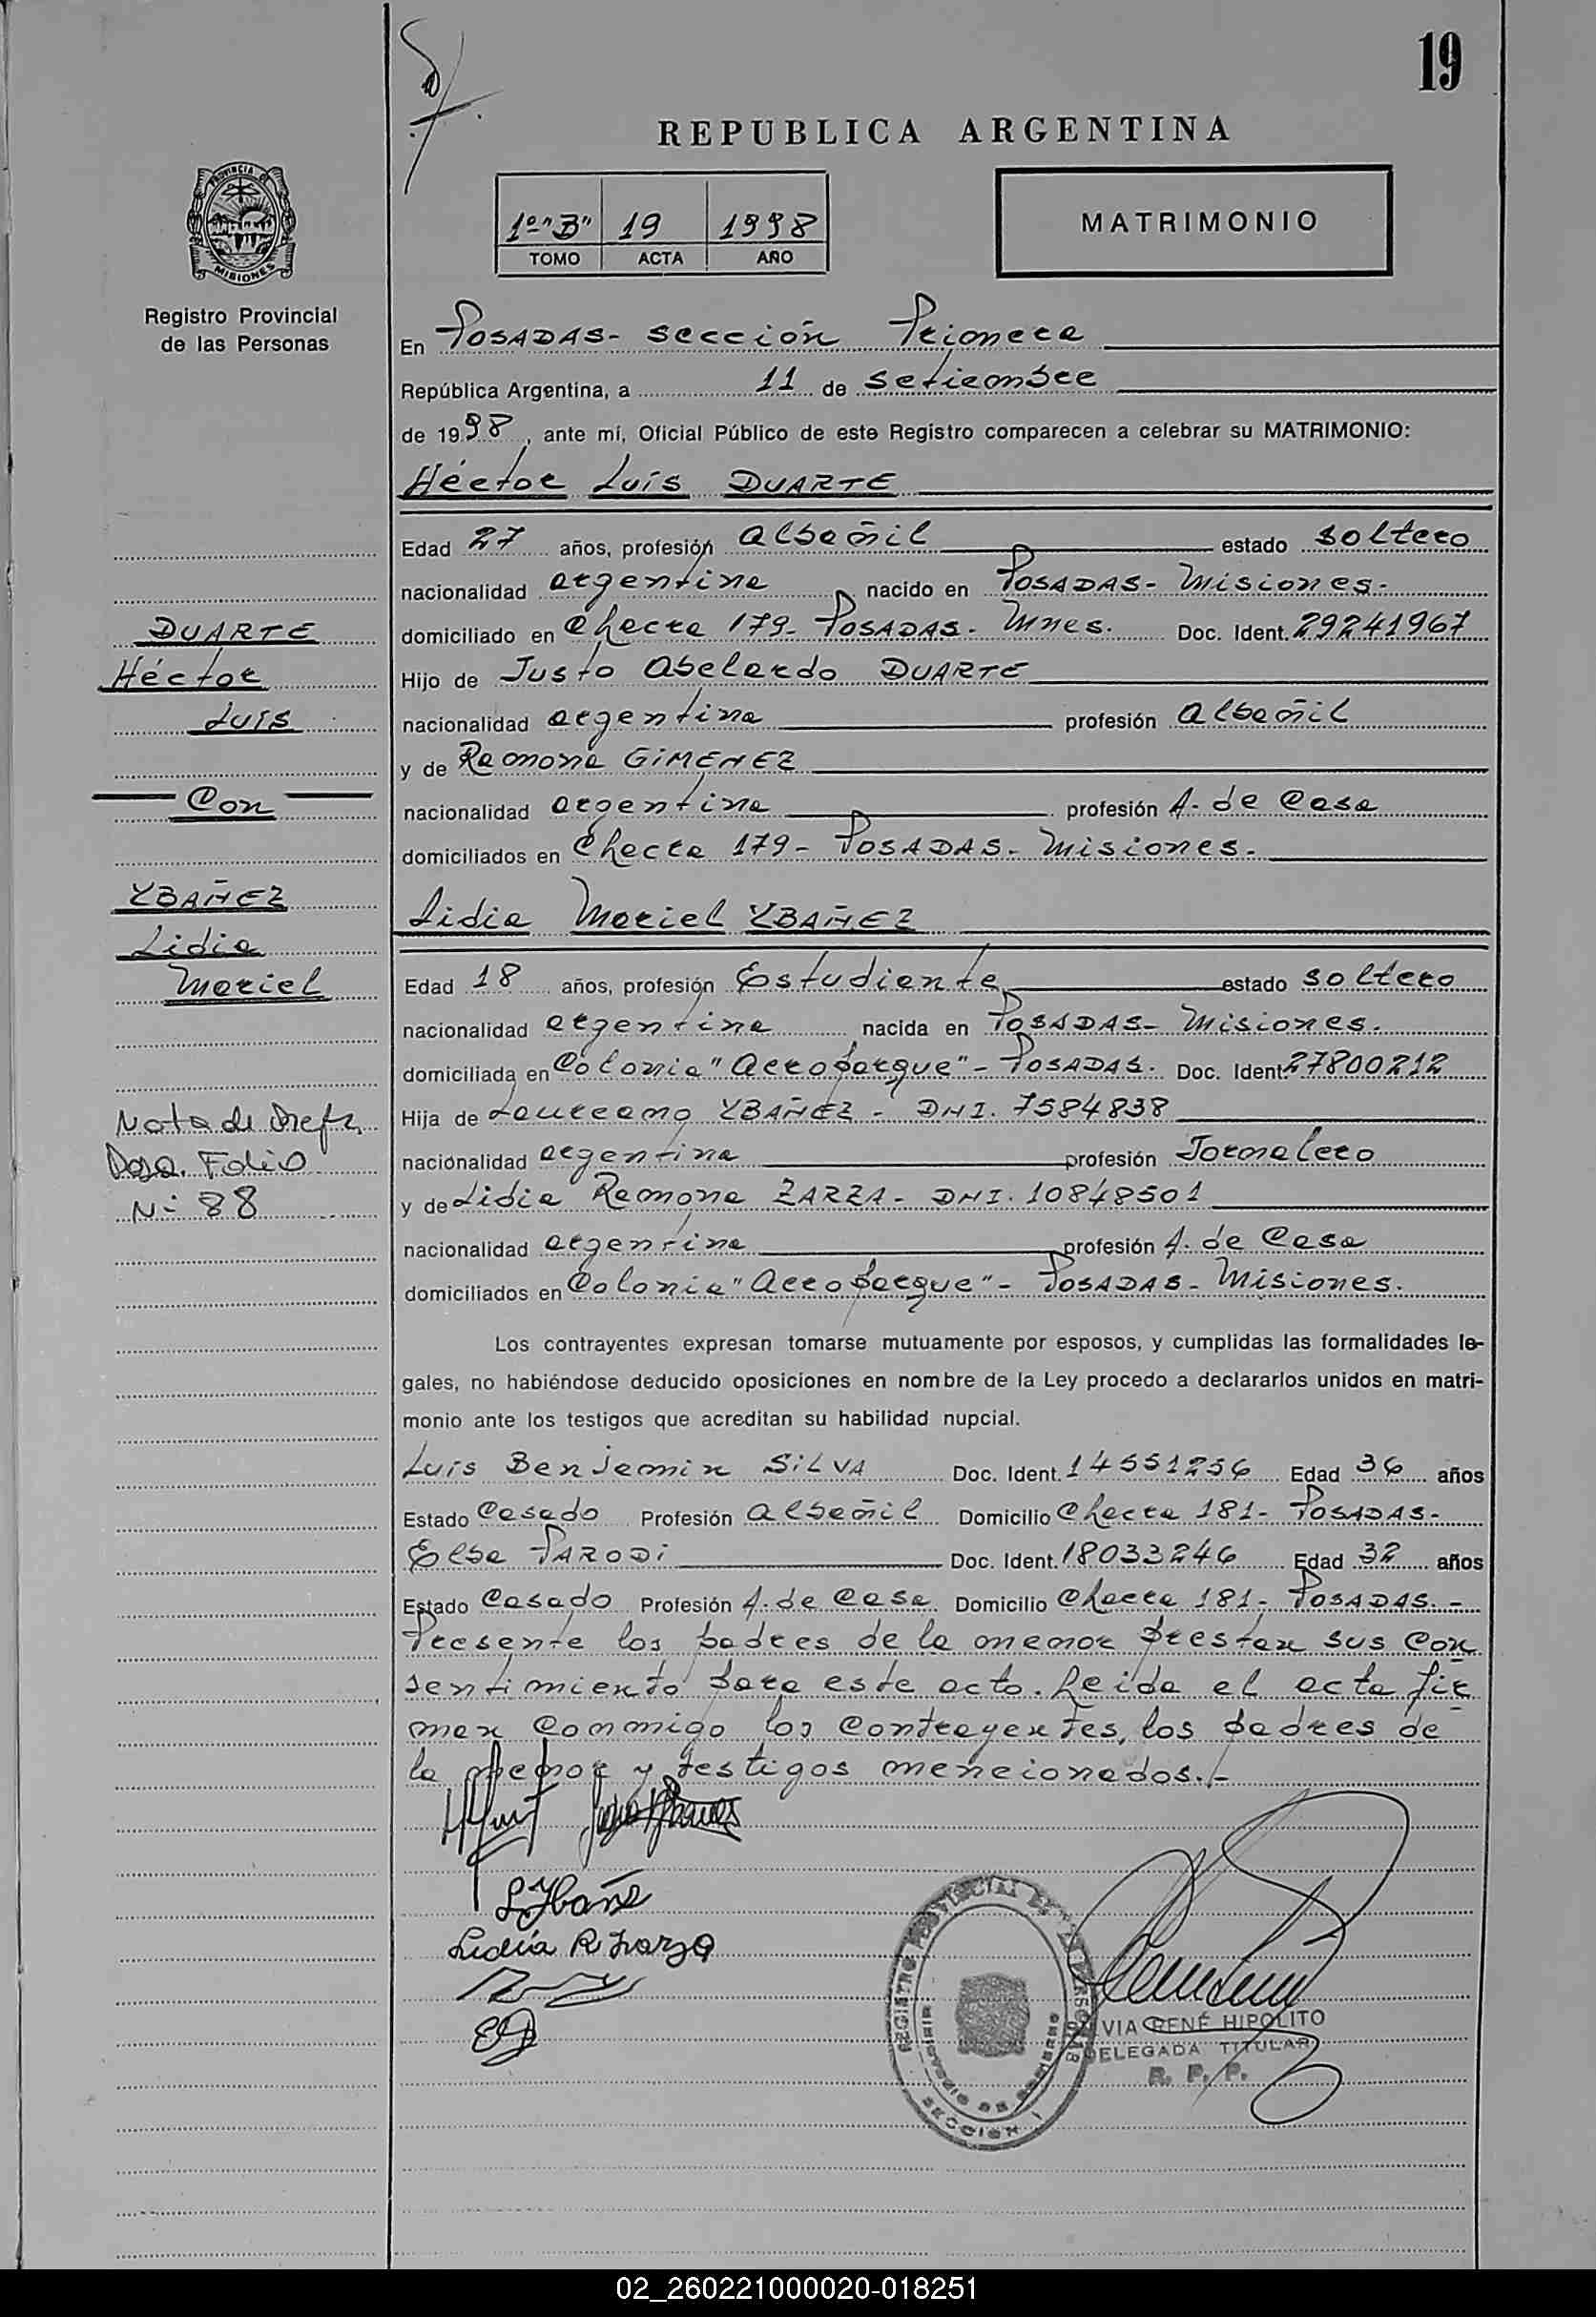 19
REPUBLICA ARGENTINA
PROVINCIA DE
MISIONES
1º "B" 19 1998
TOMO ACTA AÑO
MATRIMONIO
Registro Provincial
de las Personas
En POSADAS- sección Primera
República Argentina, a 11 de setiembre
de 1998, ante mí, Oficial Público de este Registro comparecen a celebrar su MATRIMONIO:
Héctor Luís DUARTE
Edad 27 años, profesión albañil estado soltero
nacionalidad argentina nacido en POSADAS- Misiones-
domiciliado en Checta 179- POSADAS- Mnes. Doc. Ident. 29241967
Hijo de Justo Abelardo DUARTE
nacionalidad argentina profesión albañil
y de Ramona GiMENEZ
nacionalidad argentina profesión A. de Casa
domiciliados en Checta 179- POSADAS- Misiones-
Lidia Mariel YBAÑEZ
Edad 18 años, profesión Estudiante estado soltero
nacionalidad argentina nacida en POSADAS- Misiones.
domiciliada en Colonia "Aeroparque"- POSADAS. Doc. Ident. 27800212
Hija de Laureano YBAÑEZ- DNI. 7584838
nacionalidad argentina profesión Jornalero
y de Lidia Ramona ZARZA- DNI. 10848501
nacionalidad argentina profesión A. de Casa
domiciliados en Colonia "Aeroparque"- POSADAS- Misiones.
DUARTE
Héctor
Luis
Con
YBAÑEZ
Lidia
Mariel
Nota de Ref.
Folio
Nº 88
Los contrayentes expresan tomarse mutuamente por esposos, y cumplidas las formalidades le-
gales, no habiéndose deducido oposiciones en nombre de la Ley procedo a declararlos unidos en matri-
monio ante los testigos que acreditan su habilidad nupcial.
Luis Benjamin SiLVA Doc. Ident. 14551256 Edad 36 años
Estado Casado Profesión albañil Domicilio Checta 181- POSADAS-
Elsa PARODi Doc. Ident. 18033246 Edad 32 años
Estado Casado Profesión A. de Casa Domicilio Checta 181- POSADAS.-
Presente los padres de la menor prestan sus con
sentimiento para este acto. Leida el acta fir
man conmigo los contrayentes, los padres de
la menor y testigos mencionados.-
L Ybañe
Lidia R Zarza
REGISTRO PROVINCIAL DE LAS PERSONAS
MINISTERIO DE GOBIERNO
SECCION 1
VIA RENÉ HIPOLITO
DELEGADA TITULAR
R. P. P.
02_260221000020-018251